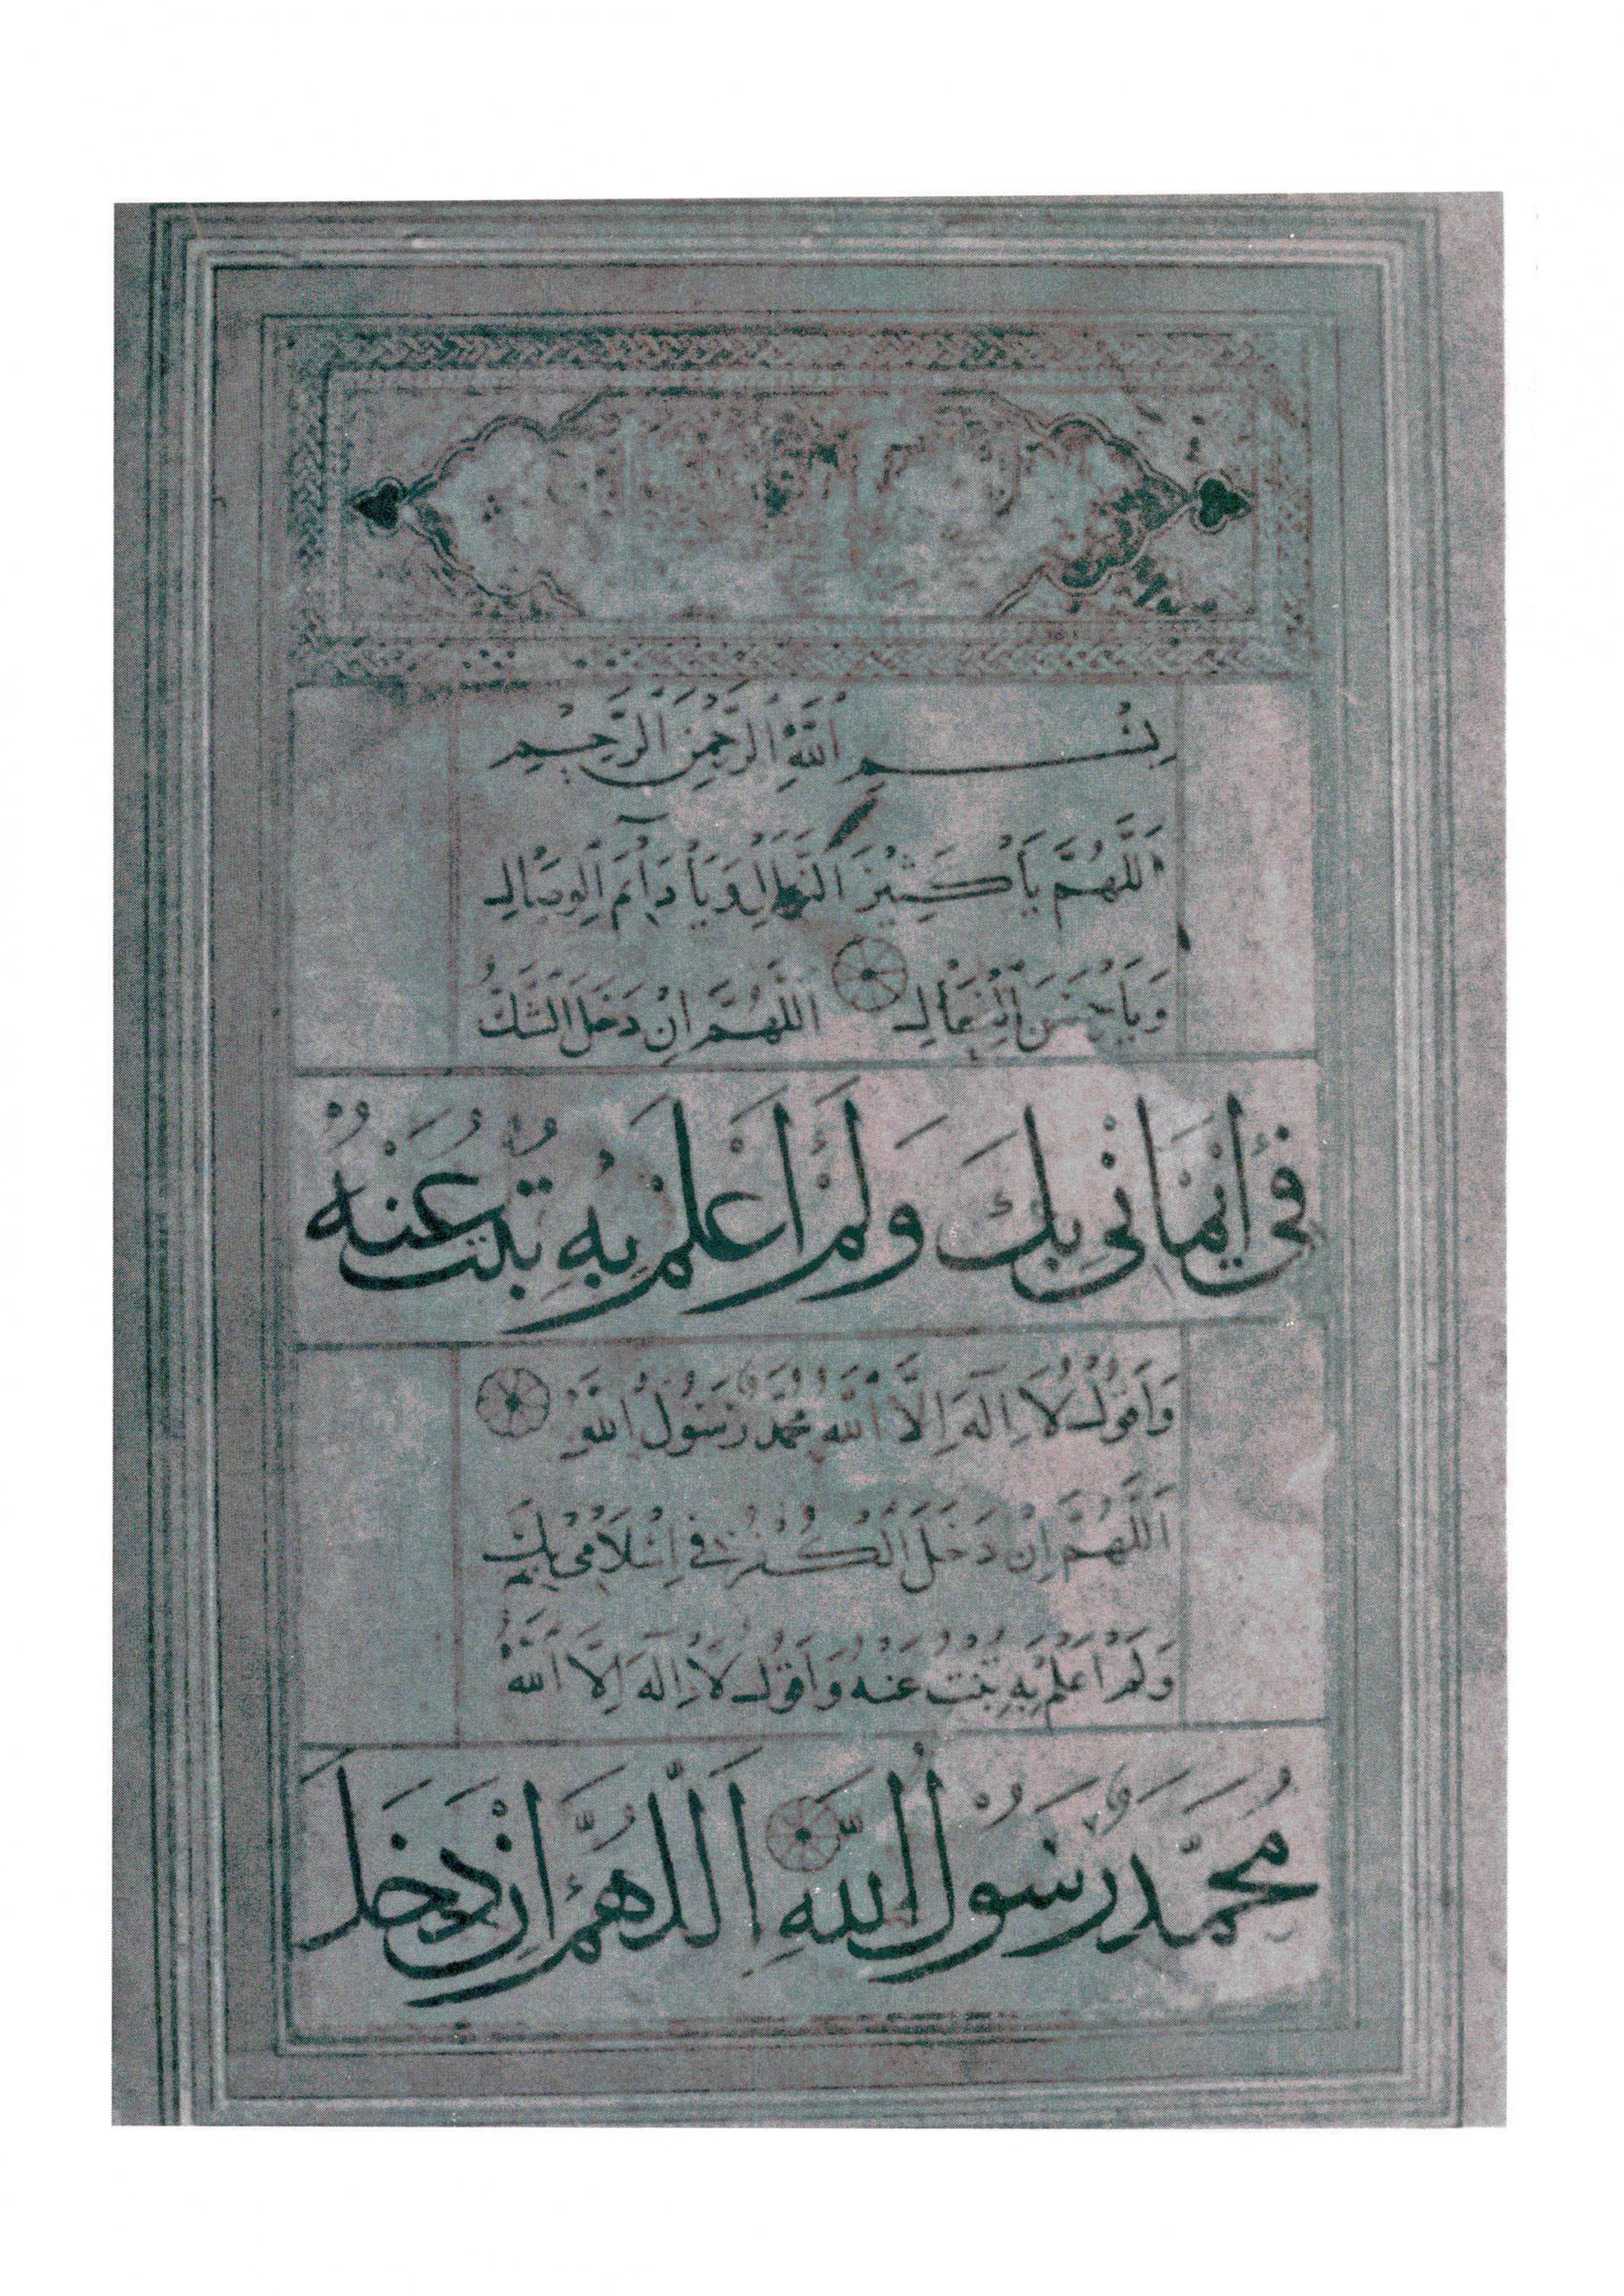 بِسْمِ اللَّهِ الرَّحْمٰنِ الرَّحِيمِ
اَللَّهُمَّ يَا كَثِيرَ النَّوَالِ وَيَا دَآئِمَ الْوِصَالِ
وَيَا حَسَنَ الْفِعَالِ اَللَّهُمَّ اِنْ دَخَلَ الشَّكُّ
فِي اِيْمَانِي بِكَ وَلَمْ اَعْلَمْ بِهِ تُبْتُ عَنْهُ
وَاَقُولُ لَا اِلٰهَ اِلَّا اللَّهُ مُحَمَّدٌ رَسُولُ اللَّهِ
اَللَّهُمَّ اِنْ دَخَلَ الْكُفْرُ فِي اِسْلَامِي بِكَ
وَلَمْ اَعْلَمْ بِهِ تُبْتُ عَنْهُ وَاَقُولُ لَا اِلٰهَ اِلَّا اللَّهُ
مُحَمَّدٌ رَسُولُ اللَّهِ اَللَّهُمَّ اِنْ دَخَلَ